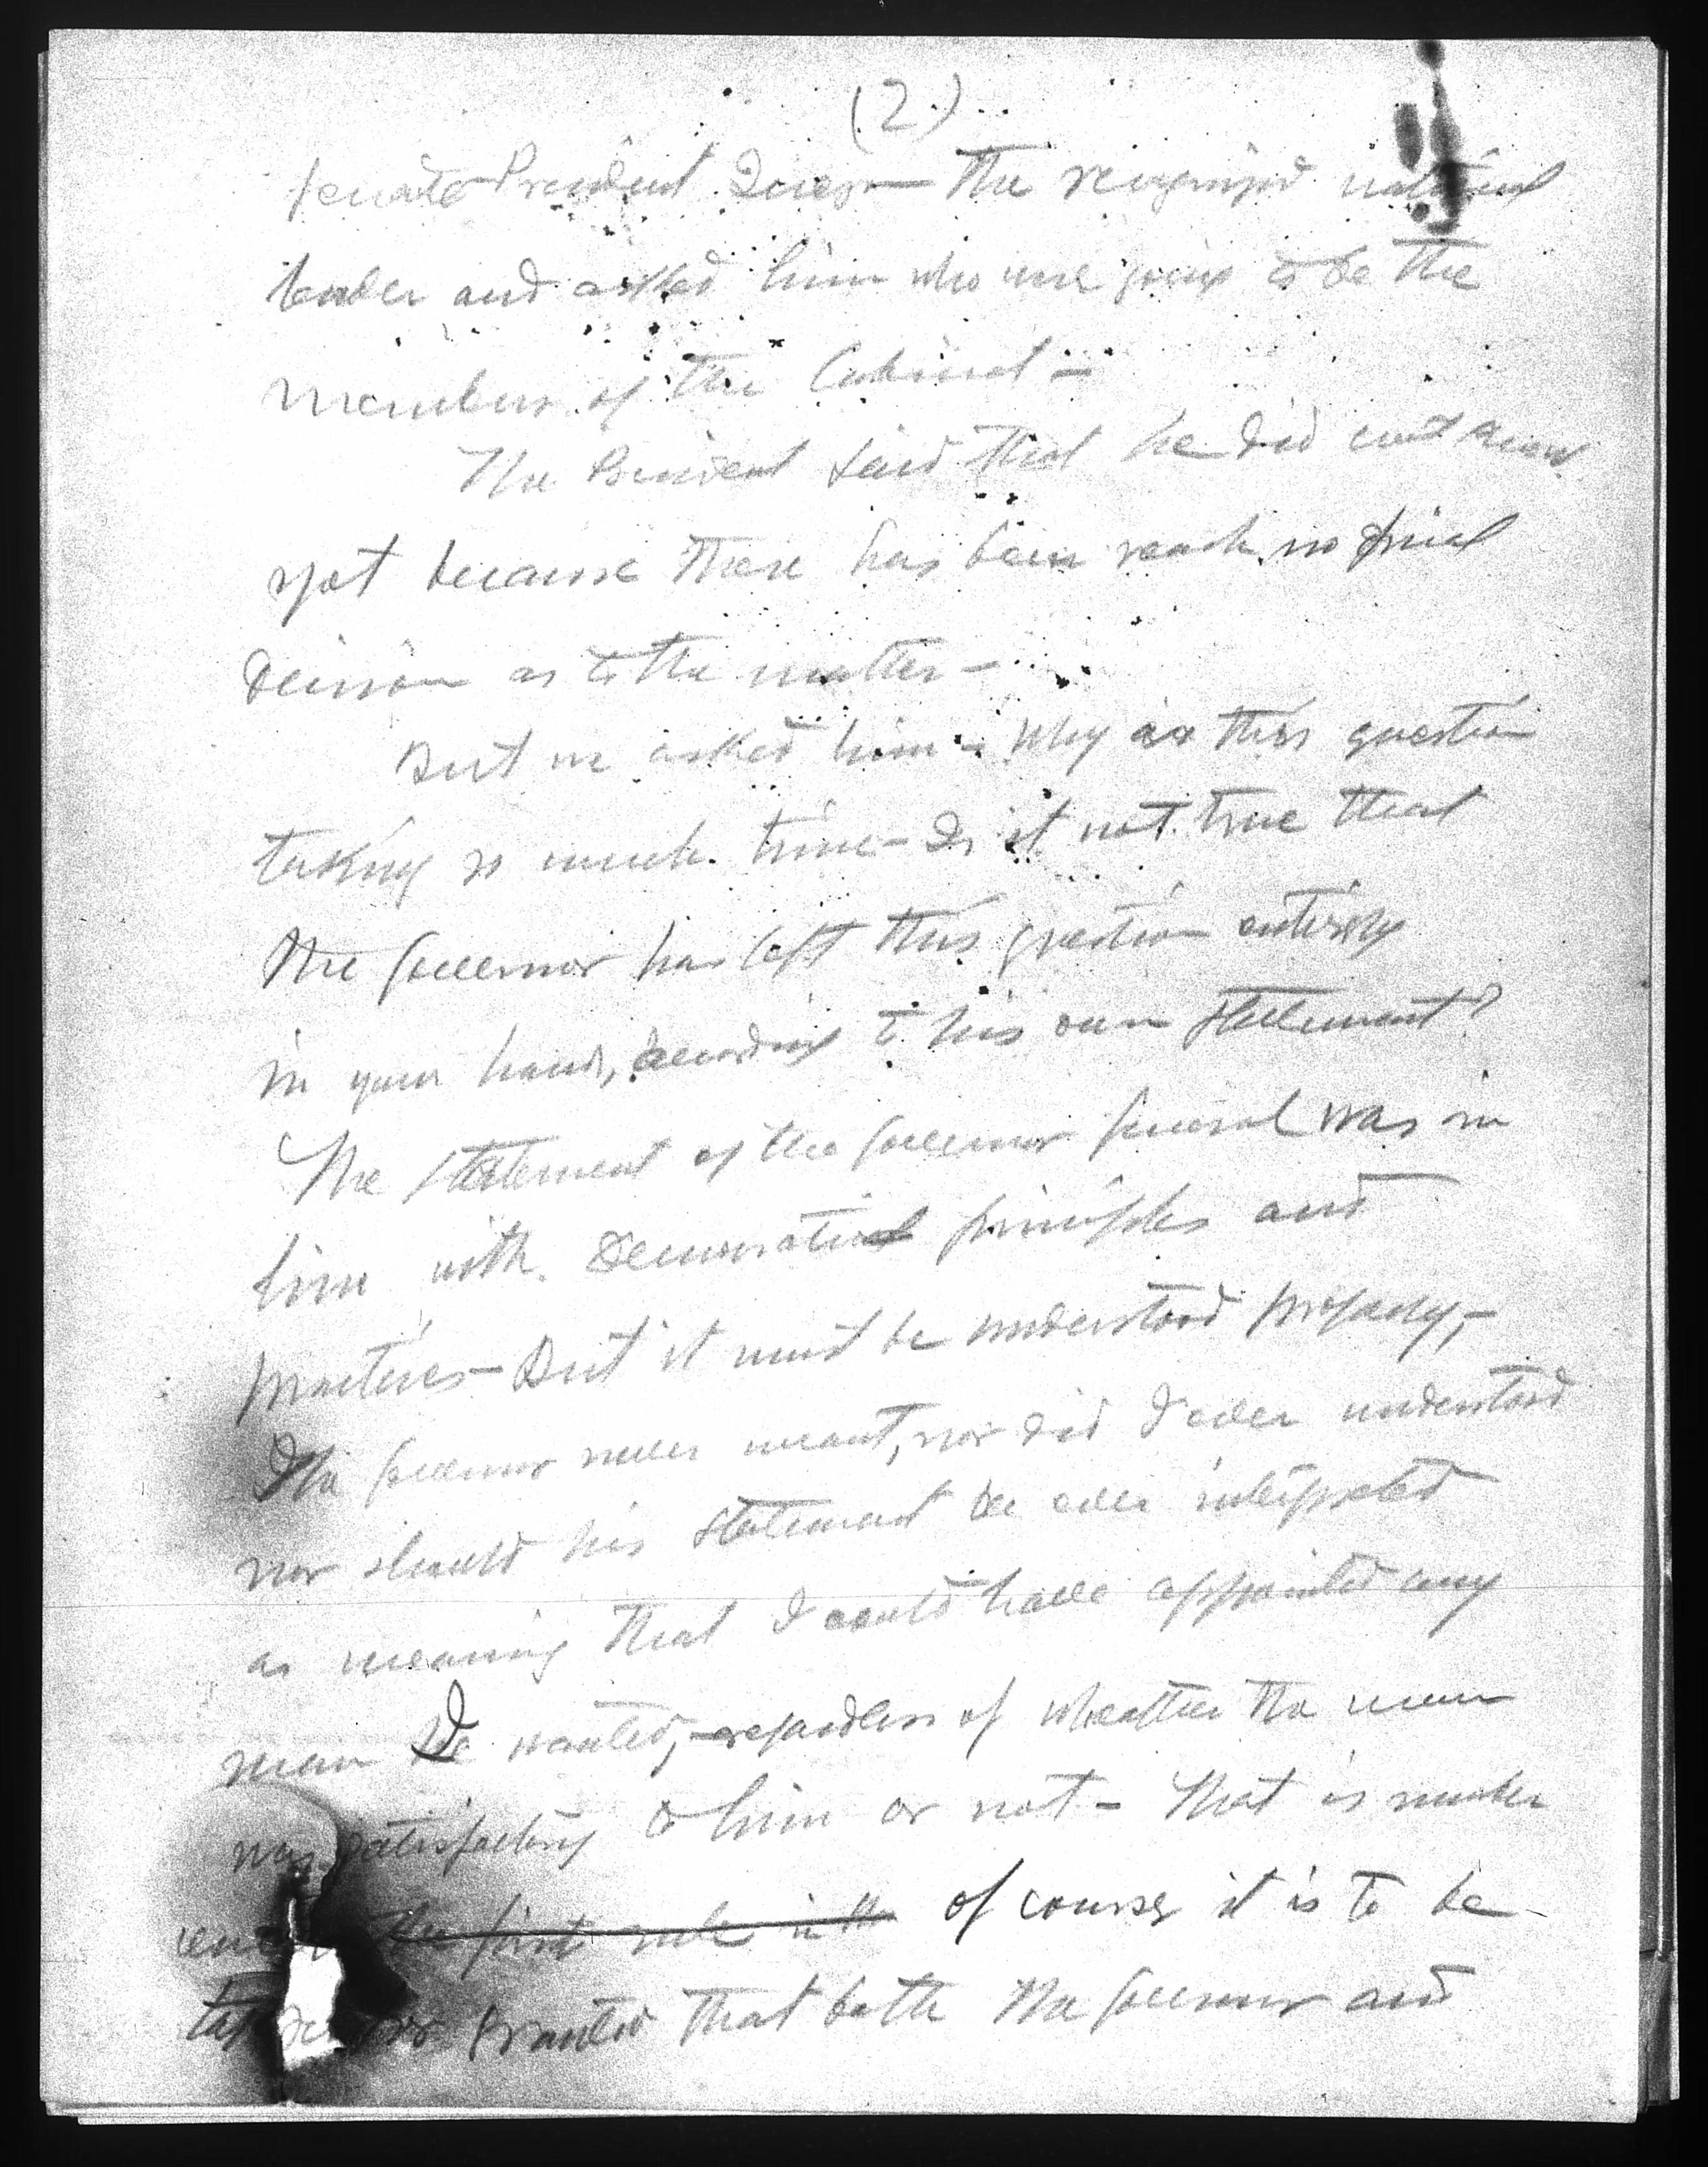 (2)
Senate President Quezon— the recognized national
leader and asked him who were going to be the
members of the Cabinet—
The President said that he did not know
yet because there has been reach no final
decision as to the matter—
But we asked him— Why is this question
taking so much time— Is it not true that
the Governor has left this question entirely
in your hands, according to his own statement?
The statement of the Governor General was in
line with Democratic principles and
practices— But it must be understood properly,—
The Governor never meant, nor did I ever understood
nor should his statement be ever interpreted
as meaning that I could have appointed any
man I wanted, regardless of whether the man
was satisfactory to him or not— That is
the first rule in the of course it is to be
for granted that both the Governor and